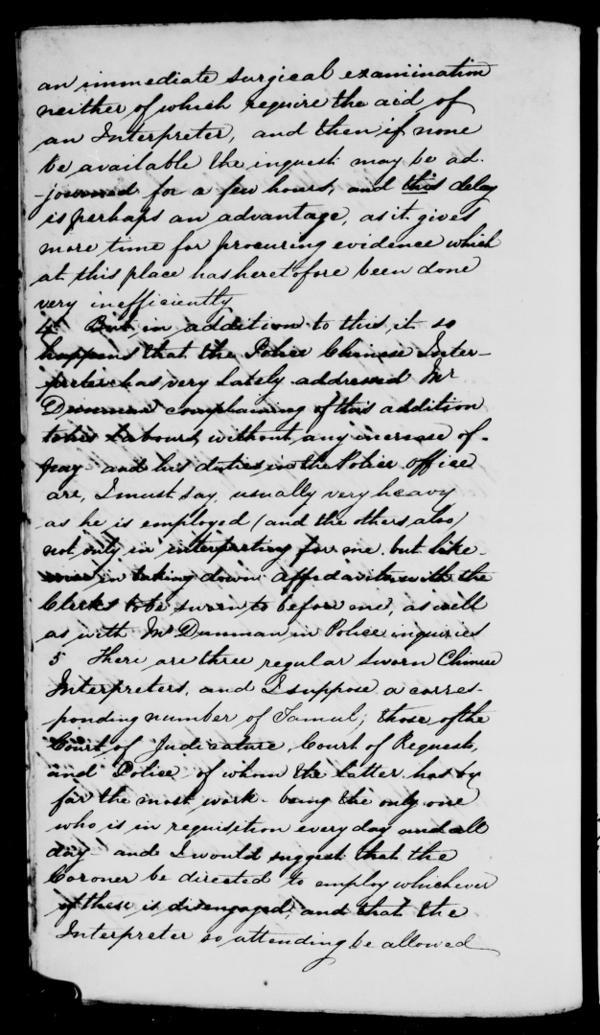 an immediate surgical examination
neither of which require the aid of
an Interpreter, and then if none
be available the inquest may be ad-
-journed for a few hours, and this delay
is perhaps an advantage, as it gives
more time for procuring evidence which
at this place has heretofore been done
very inefficiently
4 But in addition to this, it so
happens that the Police Chinese Inter-
preter has very lately addressed Mr
Dunman complaining of this addition
to his Labours, without any increase of
pay - and his duties in the Police office
are, I must say, usually very heavy
as he is employed (and the others also)
not only in interpreting for me, but like-
wise in taking down affidavits with the
Clerks to be sworn to before me, as well
as with Mr Dunman in Police inquiries
5 There are three regular sworn Chinese
Interpreters, and I suppose a corres-
ponding number of Tamul; those of the
Court of Judicature, Court of Requests,
and Police of whom the latter has by
far the most work - being the only one
who is in requisition every day and all
day - and I would suggest that the
Coroner be directed to employ whichever
of these is disengaged; and that the
Interpreter so attending be allowed